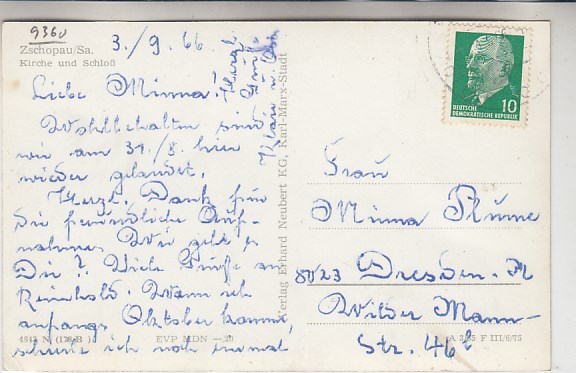 9360
Zschopau/Sa.
Kirche und Schloß
3./9. 66
Liebe Minna!
Wohlbehalten sind
wir am 31./8. hier
wieder gelandet.
Herzl. Dank für
Die freundliche Auf-
nahme. Wie geht es
Dir? Viele Grüße an
Reinhold. Wenn ich
anfangs Oktober komme,
schreibe ich noch einmal
Herzl.
Grüße
Verlag Erhard Neubert KG, Karl-Marx-Stadt
DEUTSCHE
DEMOKRATISCHE REPUBLIK
10
Frau
Minna Blume
8023 Dresden-N
Wilder Mann-
Str. 46
EVP MDN —.20
A 3/65 F III/6/75